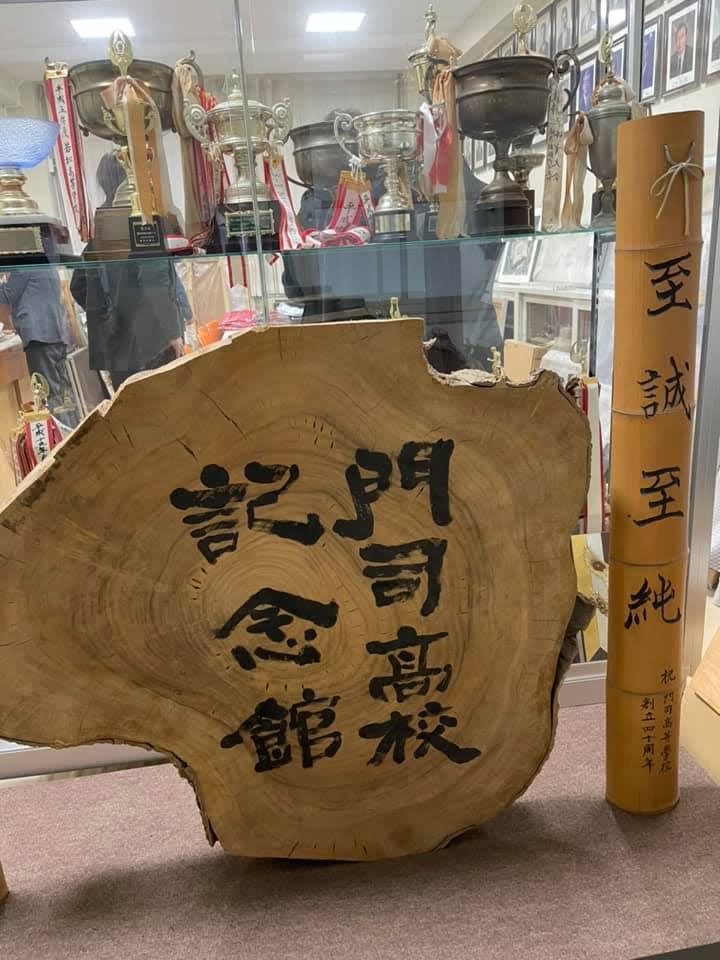 門司高校
記念館
至誠至純
祝 門司高等学校
創立四十周年